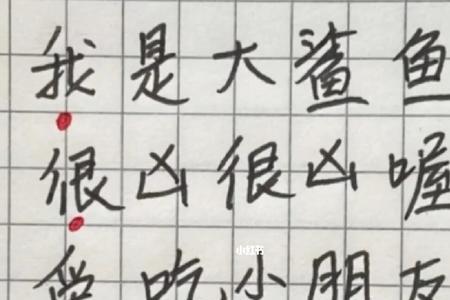 我是大鲨鱼
很凶很凶喔
小红书
爱吃小朋友